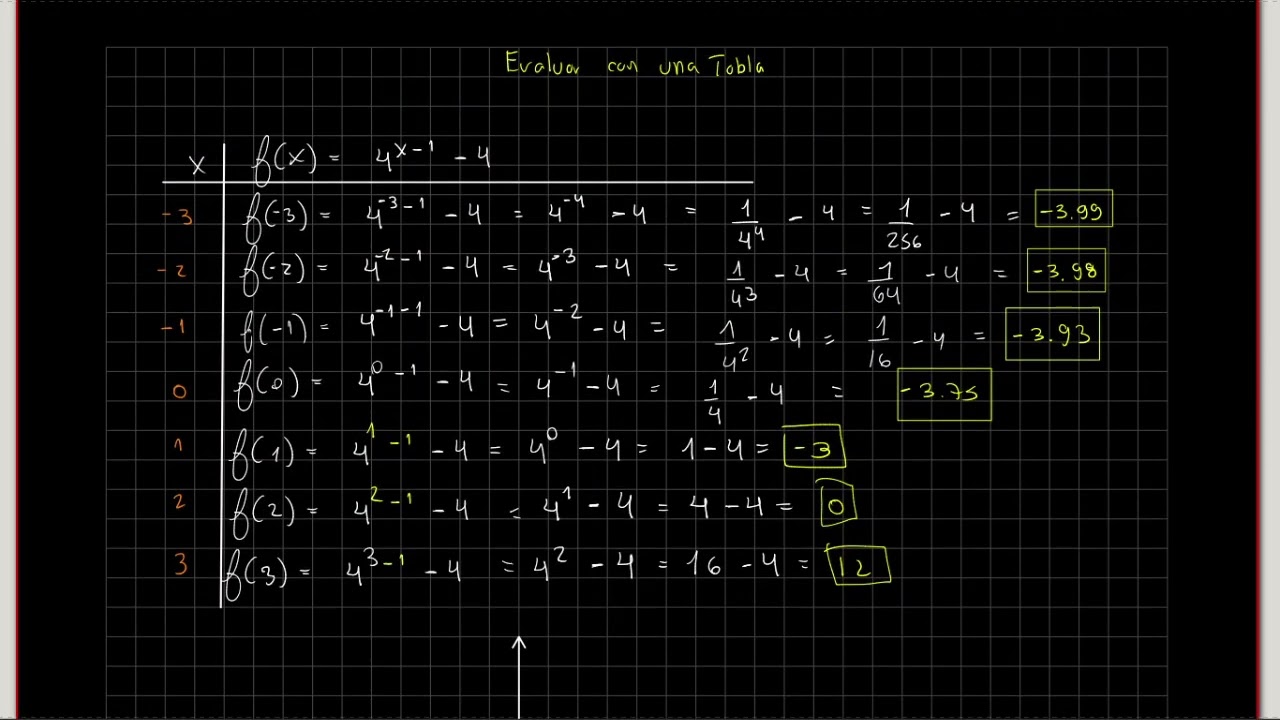 Evaluar con una Tabla
x | f(x) = 4^{x-1} - 4
-3 | f(-3) = 4^{-3-1} - 4 = 4^{-4} - 4 = 1/4^4 - 4 = 1/256 - 4 = -3.99
-2 | f(-2) = 4^{-2-1} - 4 = 4^{-3} - 4 = 1/4^3 - 4 = 1/64 - 4 = -3.98
-1 | f(-1) = 4^{-1-1} - 4 = 4^{-2} - 4 = 1/4^2 - 4 = 1/16 - 4 = -3.93
0 | f(0) = 4^{0-1} - 4 = 4^{-1} - 4 = 1/4 - 4 = -3.75
1 | f(1) = 4^{1-1} - 4 = 4^0 - 4 = 1 - 4 = -3
2 | f(2) = 4^{2-1} - 4 = 4^1 - 4 = 4 - 4 = 0
3 | f(3) = 4^{3-1} - 4 = 4^2 - 4 = 16 - 4 = 12